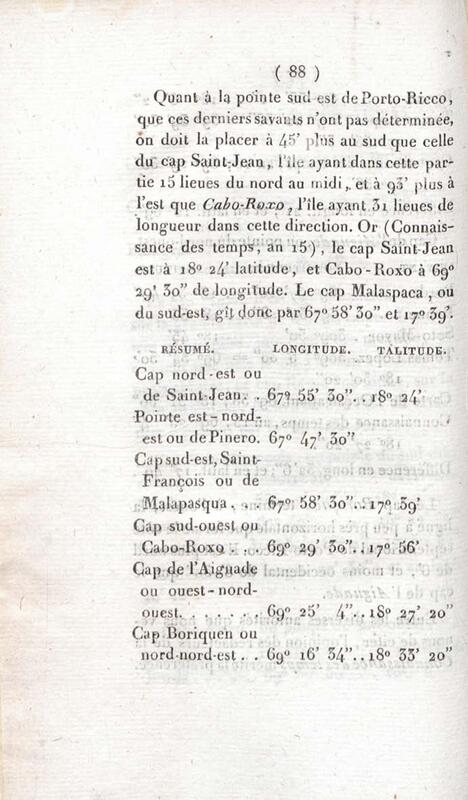 ( 88 )
Quant à la pointe sud est de Porto-Ricco,
que ces derniers savants n'ont pas déterminée,
on doit la placer à 45' plus au sud que celle
du cap Saint-Jean, l'île ayant dans cette par-
tie 15 lieues du nord au midi, et à 93' plus à
l'est que Cabo-Roxo, l'île ayant 31 lieues de
longueur dans cette direction. Or (Connais-
sance des temps, an 15), le cap Saint-Jean
est à 18º 24' latitude, et Cabo-Roxo à 69º
29' 30" de longitude. Le cap Malaspaca, ou
du sud-est, gît donc par 67º 58' 30" et 17º 39'.
RÉSUMÉ. LONGITUDE. TALITUDE.
Cap nord-est ou
de Saint-Jean. . 67º 55' 30"..18º 24'
Pointe est-nord-
est ou de Pinero. 67º 47' 30"
Cap sud-est, Saint-
François ou de
Malapasqua. . . 67º 58' 30"..17º 39'
Cap sud-ouest ou
Cabo-Roxo . . . 69º 29' 30"..17º 56'
Cap de l'Aiguade
ou ouest-nord-
ouest. . . . . . 69º 25' 4"..18º 27' 20"
Cap Boriquen ou
nord-nord-est. . 69º 16' 34"..18º 33' 20"